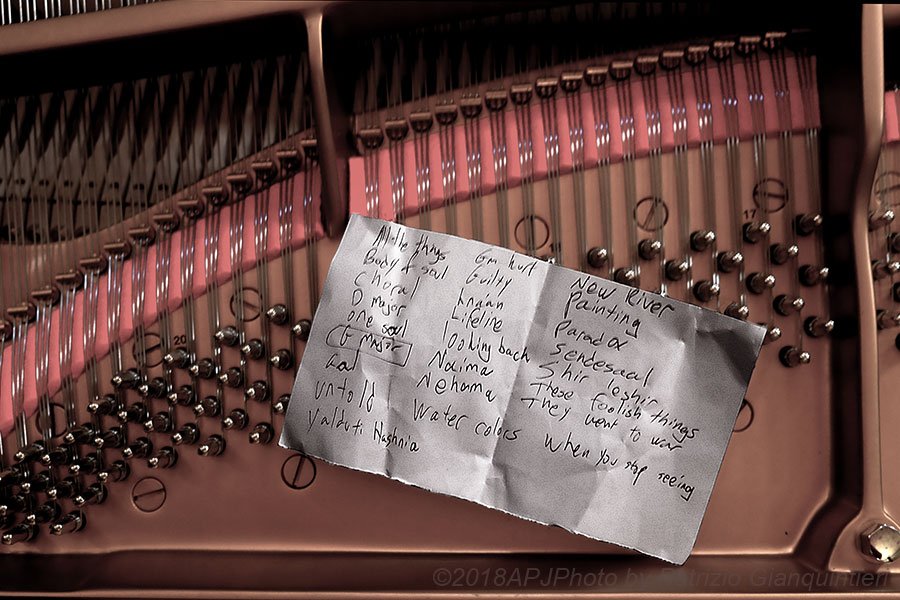 All the things
Body & soul
Choral
D major
one soul
G major
Gal
untold
Yalduti Hashnia
Gm hurt
Guilty
Knaan
Lifeline
looking back
Naima
Nehama
Water colors
New River
Painting
Paradox
Sendesaal
Shir leshir
These foolish things
They went to war
When you stop seeing
20
17
©2018APJPhoto by Patrizio Gianquintieri